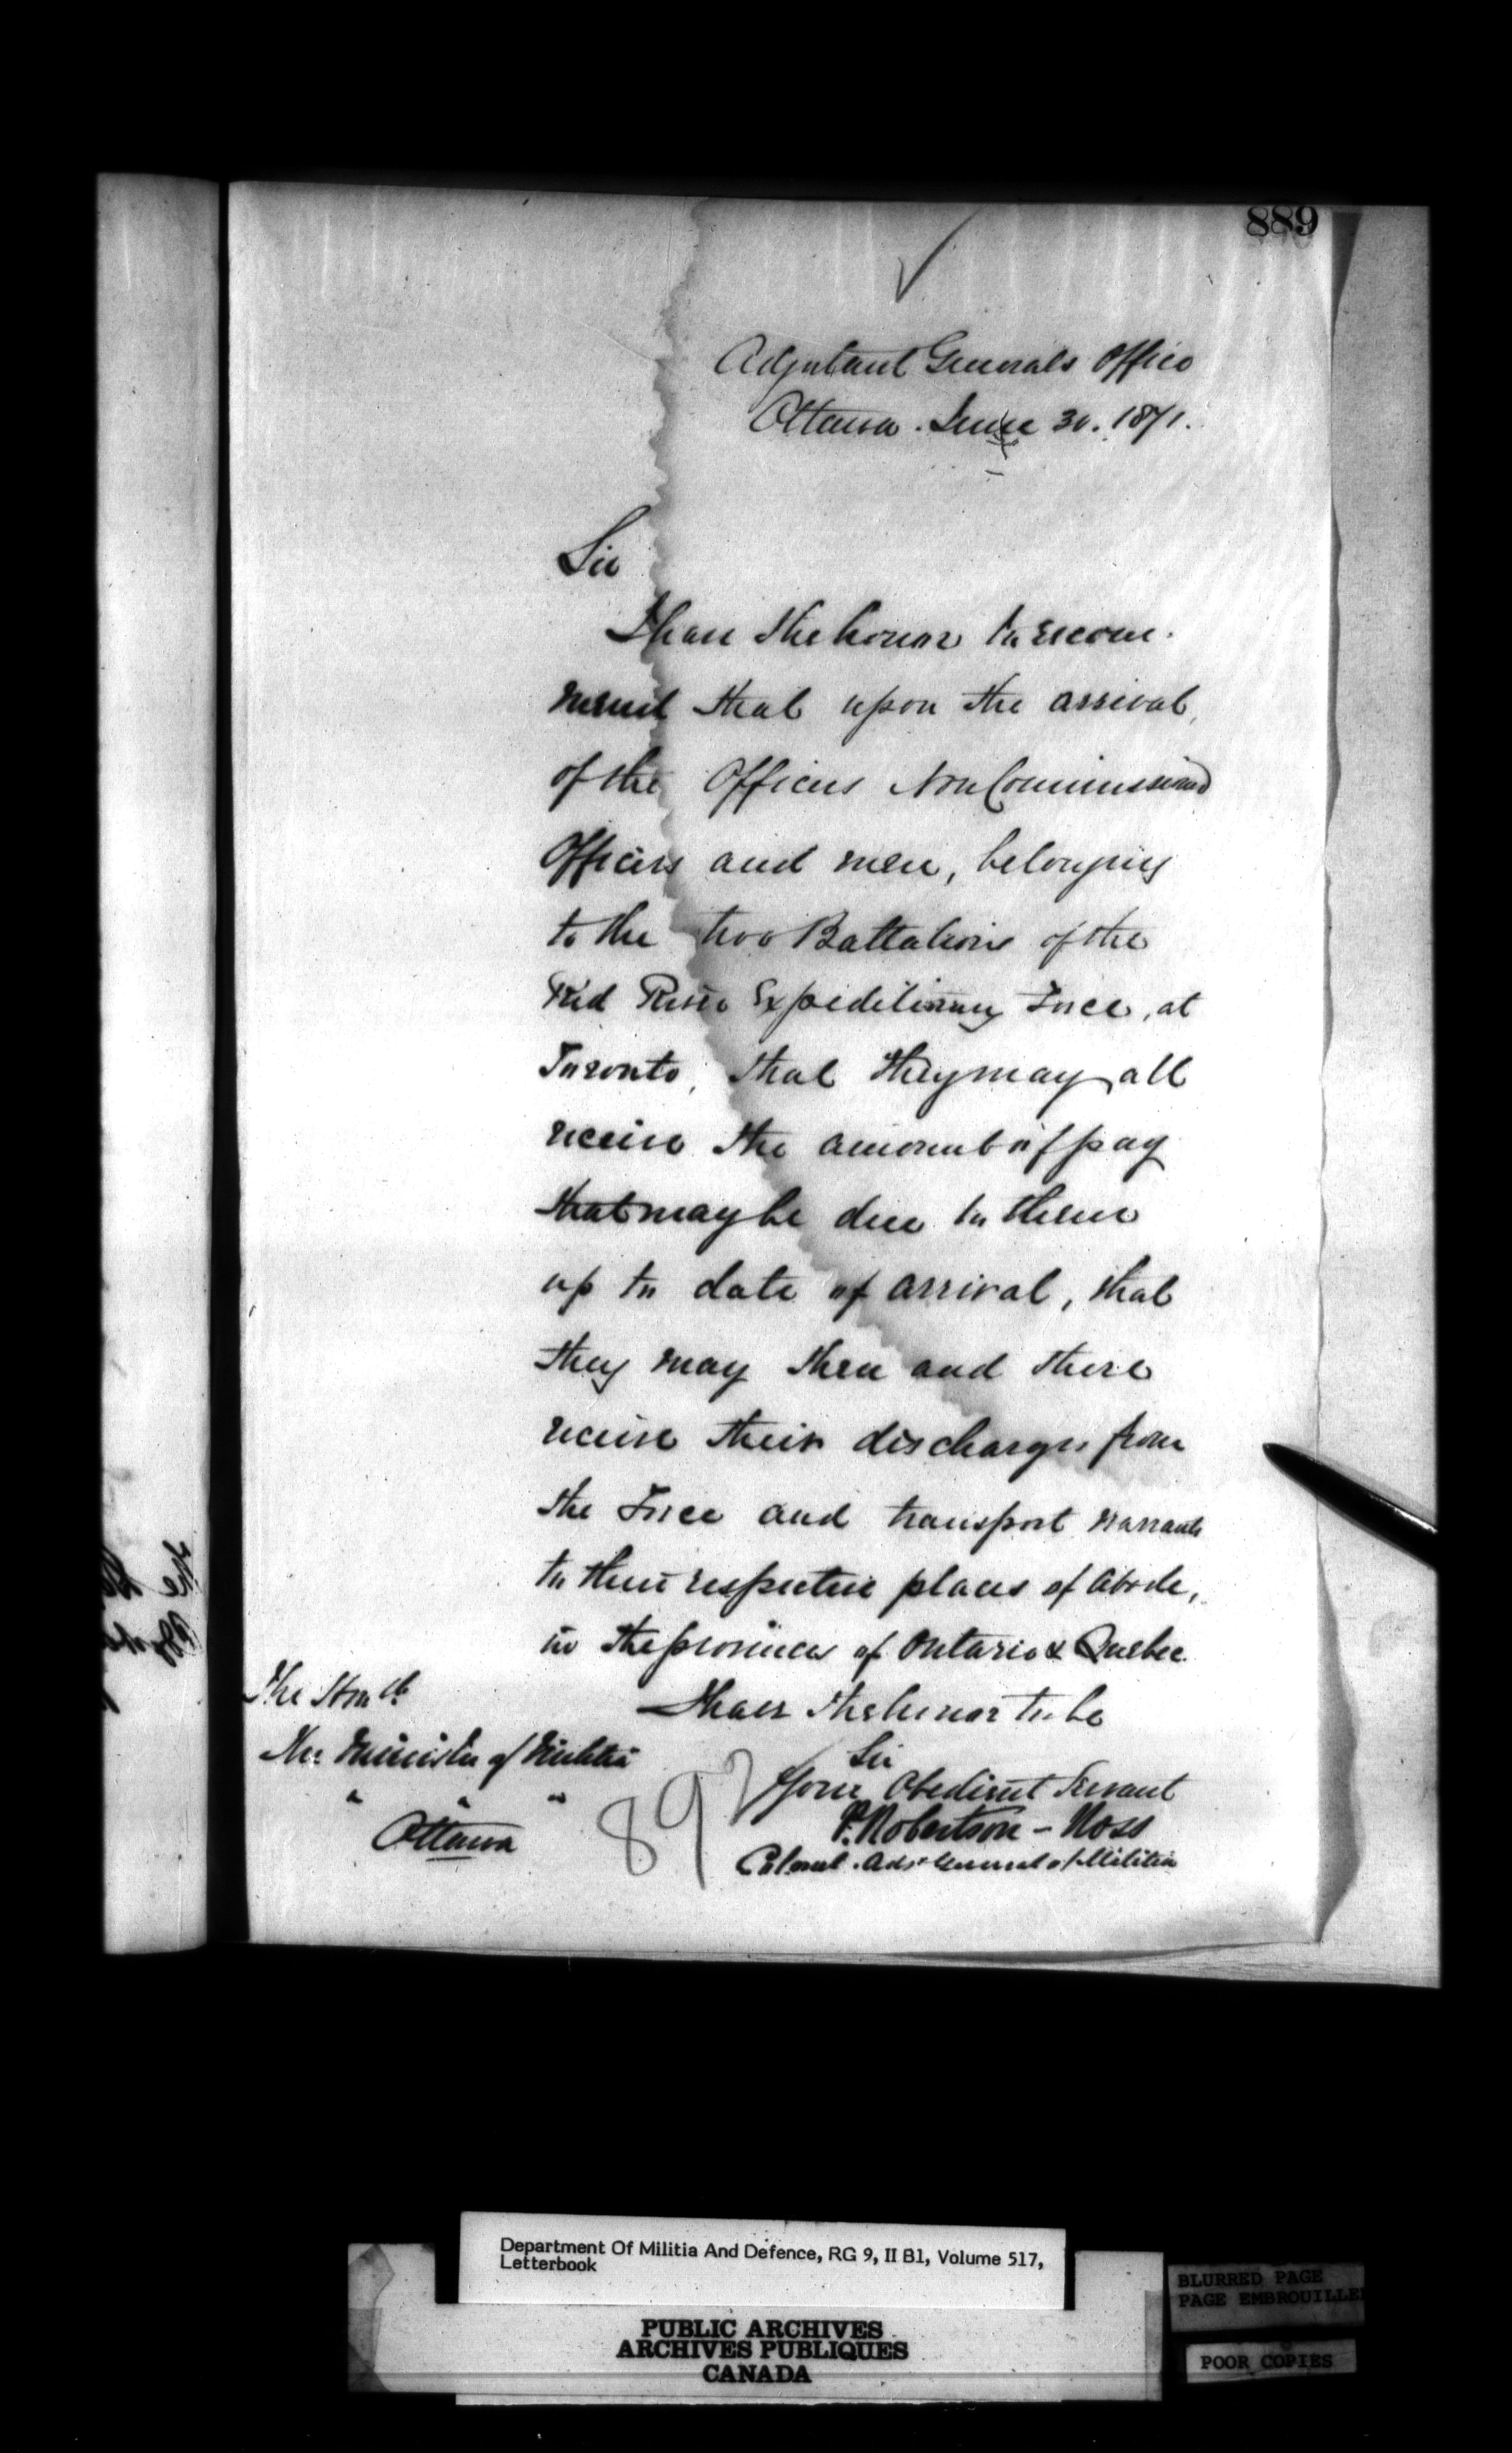 889
Adjutant Generals Office
Ottawa. June 30. 1871.
Sir
I have the honor to recom-
mend that upon the arrival
of the Officers Non Commissioned
Officers and men, belonging
to the two Battalions of the
Red River Expeditionary Force, at
Toronto, that they may all
receive the amount of pay
that may be due to them
up to date of arrival, that
they may then and there
receive their discharges from
the Force and transport warrants
to their respective places of abode,
in the provinces of Ontario & Quebec.
I have the honor to be
Sir
Your Obedient Servant
P. Robertson-Ross
Colonel. Adjt General of Militia
The Honble
The Minister of Militia
" " "
Ottawa
892
Department Of Militia And Defence, RG 9, II B1, Volume 517,
Letterbook
PUBLIC ARCHIVES
ARCHIVES PUBLIQUES
CANADA
BLURRED PAGE
PAGE EMBROUILLE
POOR COPIES